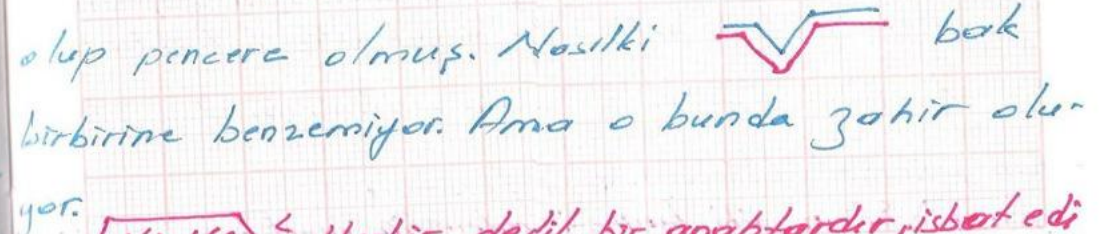 olup pencere olmuş. Nasılki bak
birbirine benzemiyor. Ama o bunda zahir olu-
yor.
bir delil bir anahtardır, isbat edi